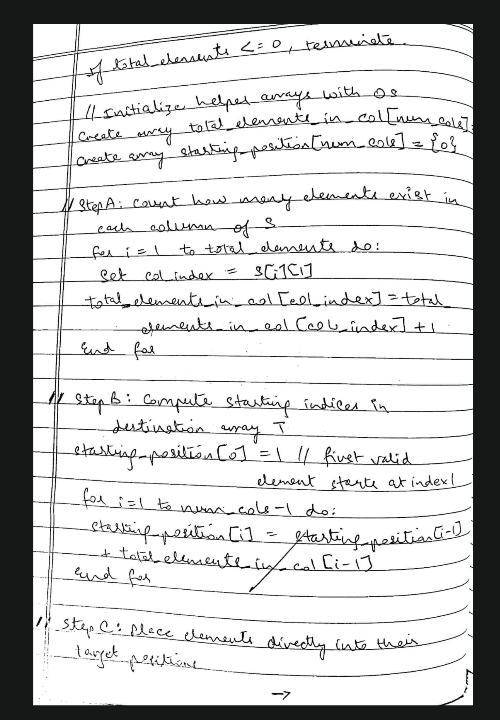 if total_elements <= 0, terminate.
// Initialize helper arrays with 0s
create array total_elements_in_col[num_cols]=
create array starting_position[num_cols] = {0}
// Step A: count how many elements exist in
each column of S
for i = 1 to total_elements do:
Set col_index = S[i][1]
total_elements_in_col [col_index] = total_
elements_in_col [col_index] + 1
End for
// Step B: Compute starting indices in
destination array T
starting_position[0] = 1 // first valid
element starts at index 1
for i=1 to num_cols-1 do:
starting_position[i] = starting_position[i-1]
+ total_elements_in_col [i-1]
End for
// Step C: Place elements directly into their
target positions
→